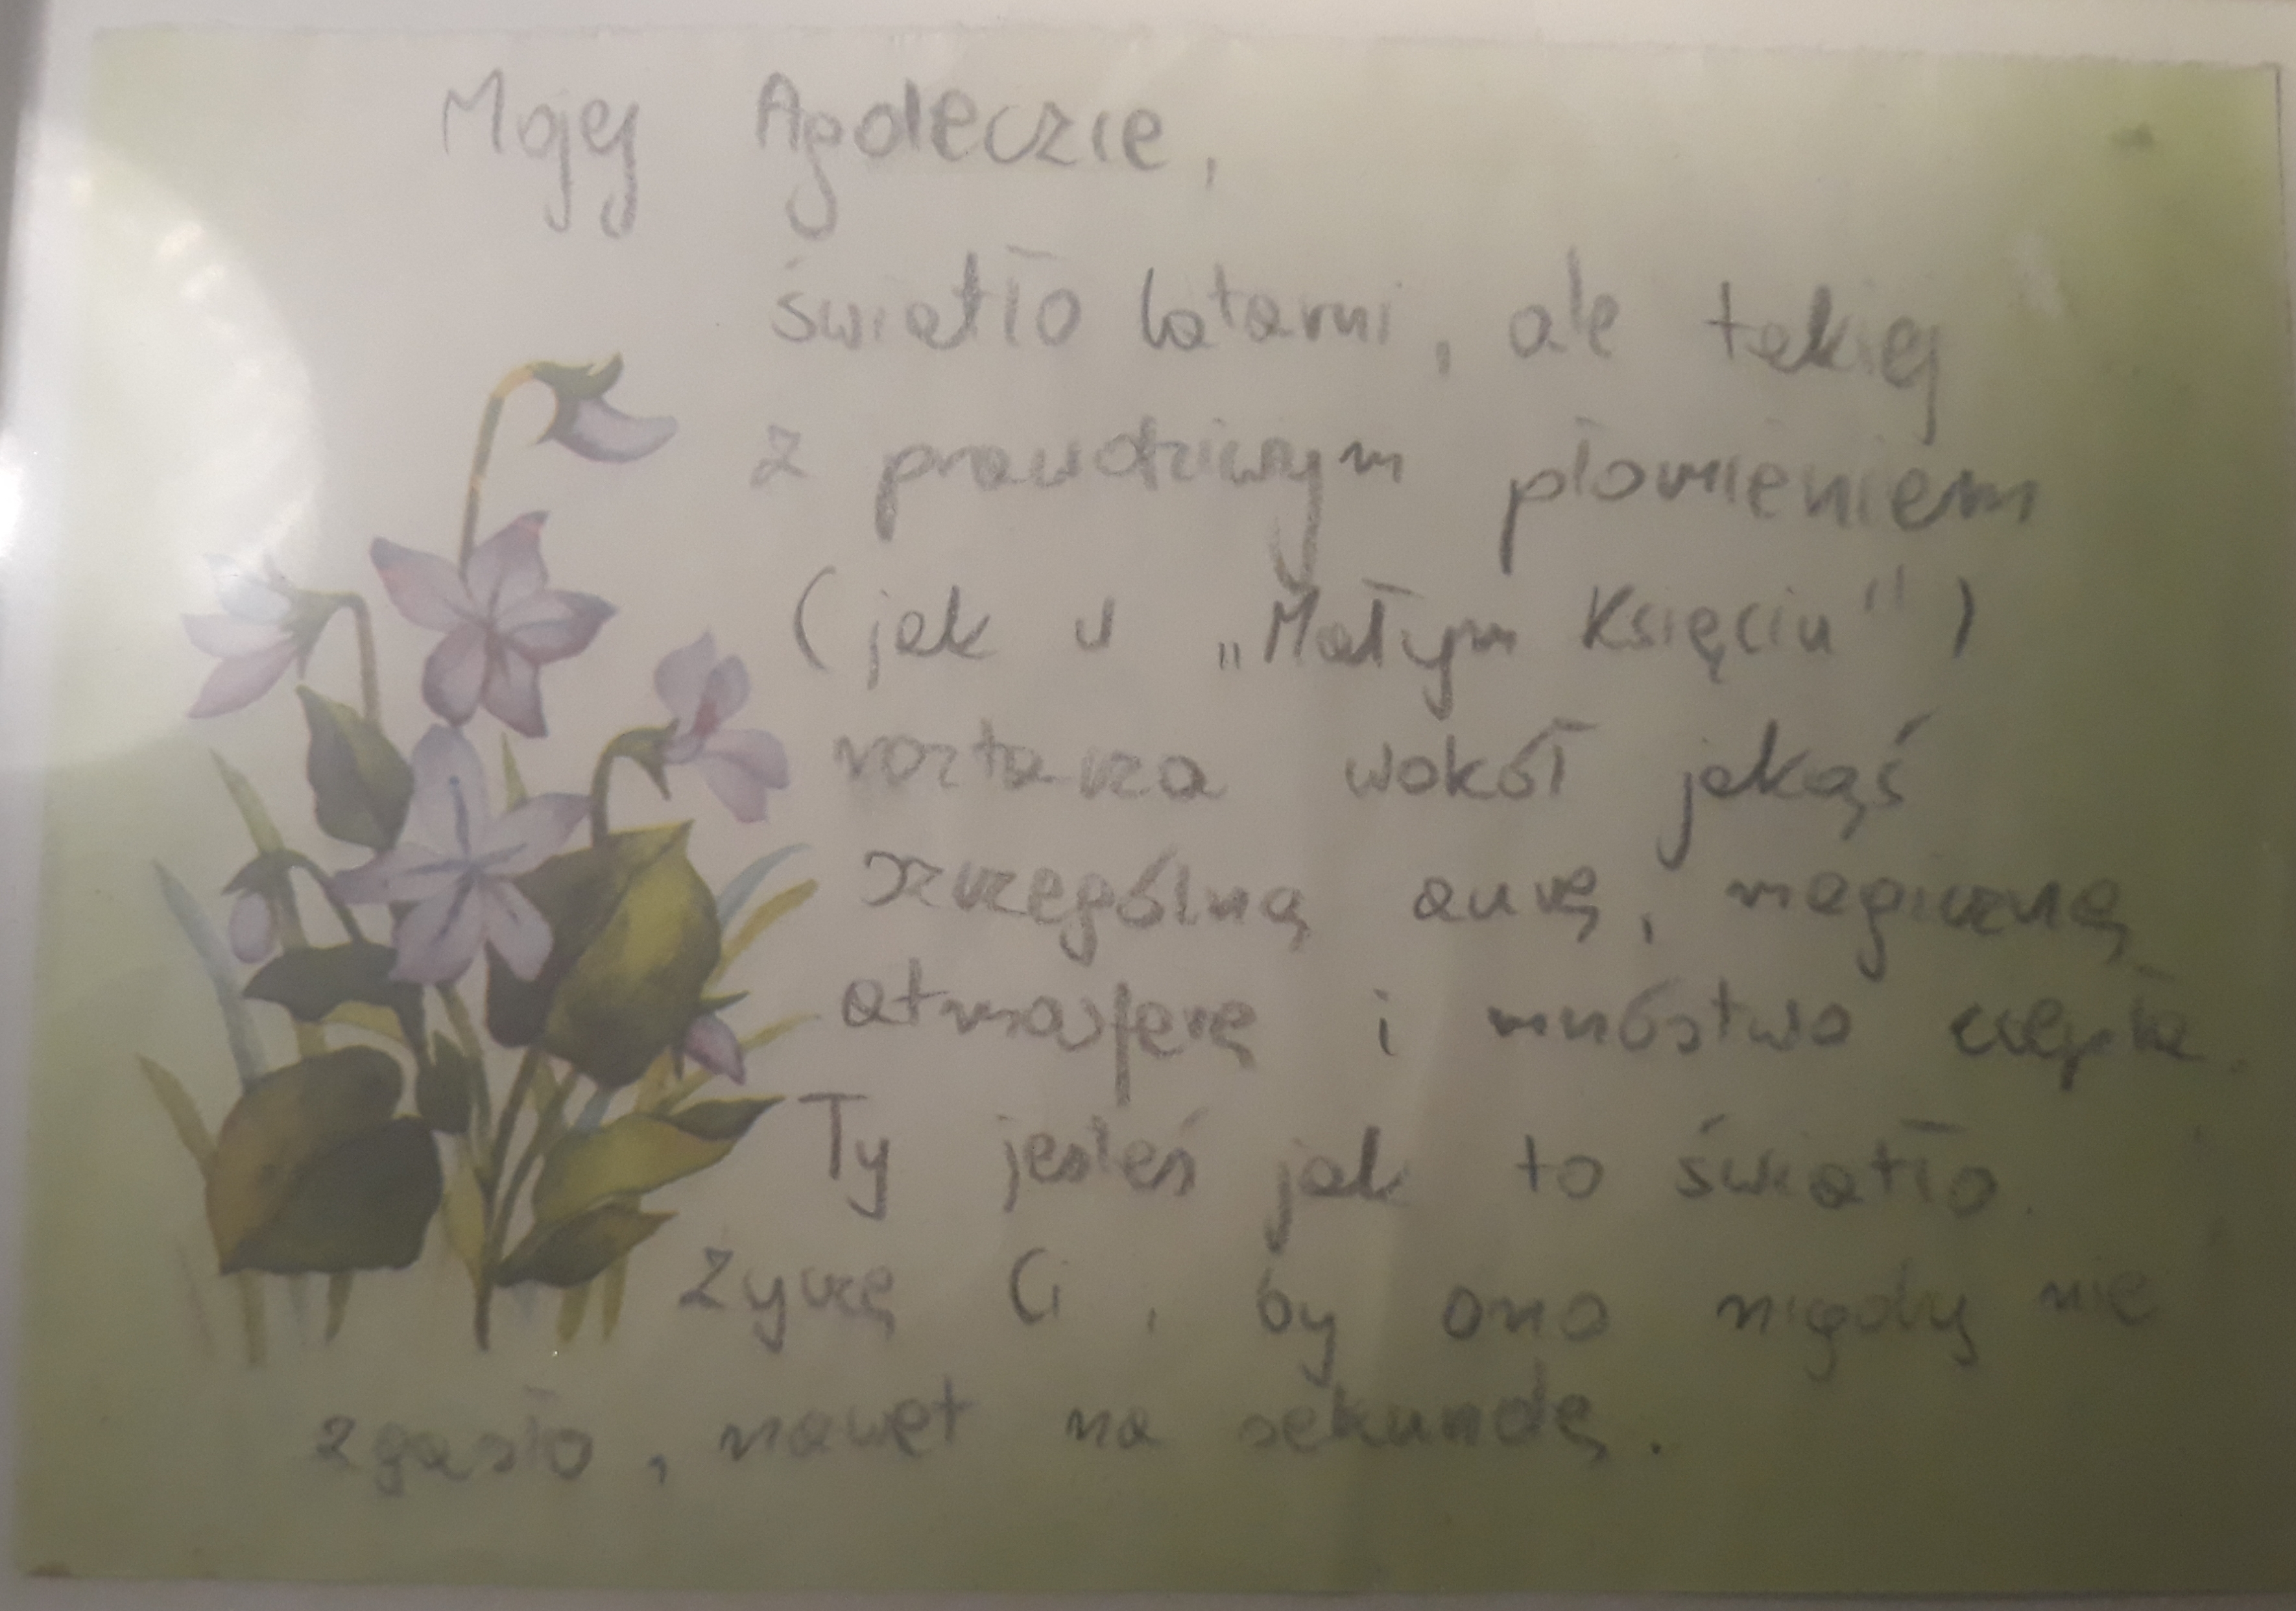 Mojej Agoleczie,
światło latarni, ale takiej
z prawdziwym płomieniem
(jak w „Małym Księciu")
roztacza wokół jakąś
szczególną aurę, magiczną
atmosferę i mnóstwo ciepła.
Ty jesteś jak to światło.
Życzę Ci, by ono nigdy nie
zgasło, nawet na sekundę.